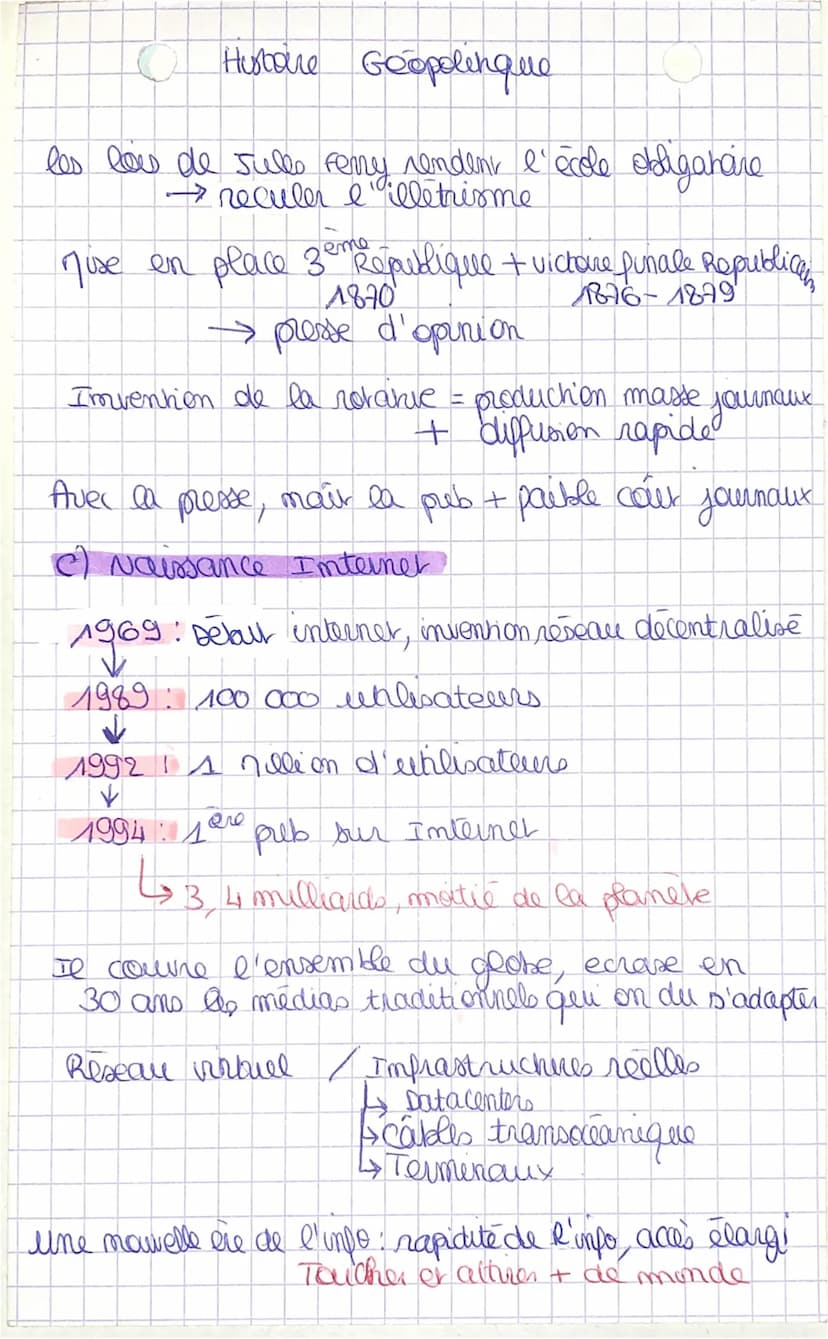 Histoire Géopolitique
les lois de Jules Ferry rendent l'école obligatoire
→ reculer l'illétrisme
Mise en place 3ème République + victoire finale Republicains
1870 1876 - 1879
→ presse d'opinion
Invention de la rotative = production masse journaux
+ diffusion rapide
Avec la presse, naît la pub + faible coût journaux
c) Naissance Internet
1969 : Début internet, invention réseau décentralisé
↓
1989 : 100 000 utilisateurs
↓
1992 : 1 Million d'utilisateurs
↓
1994 : 1ère pub sur Internet
↳ 3,4 milliards, moitié de la planète
Il couvre l'ensemble du globe, ecrase en
30 ans les médias traditionnels qui on du s'adapter
Réseau virtuel / Infrastructures réelles
↳ Datacenters
↳ Câbles transocéanique
↳ Terminaux
une nouvelle ère de l'info : rapidité de l'info, accès élargi
Toucher et attirer + de monde